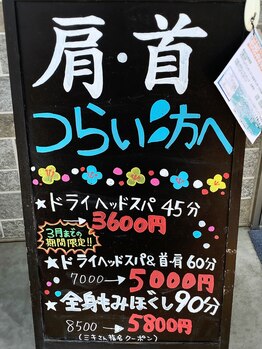 肩・首
つらい方へ
★ドライヘッドスパ 45分
→3600円
3月までの
期間限定!!
★ドライヘッドスパ&首・肩 60分
7000→5000円
★全身もみほぐし90分
8500→5800円